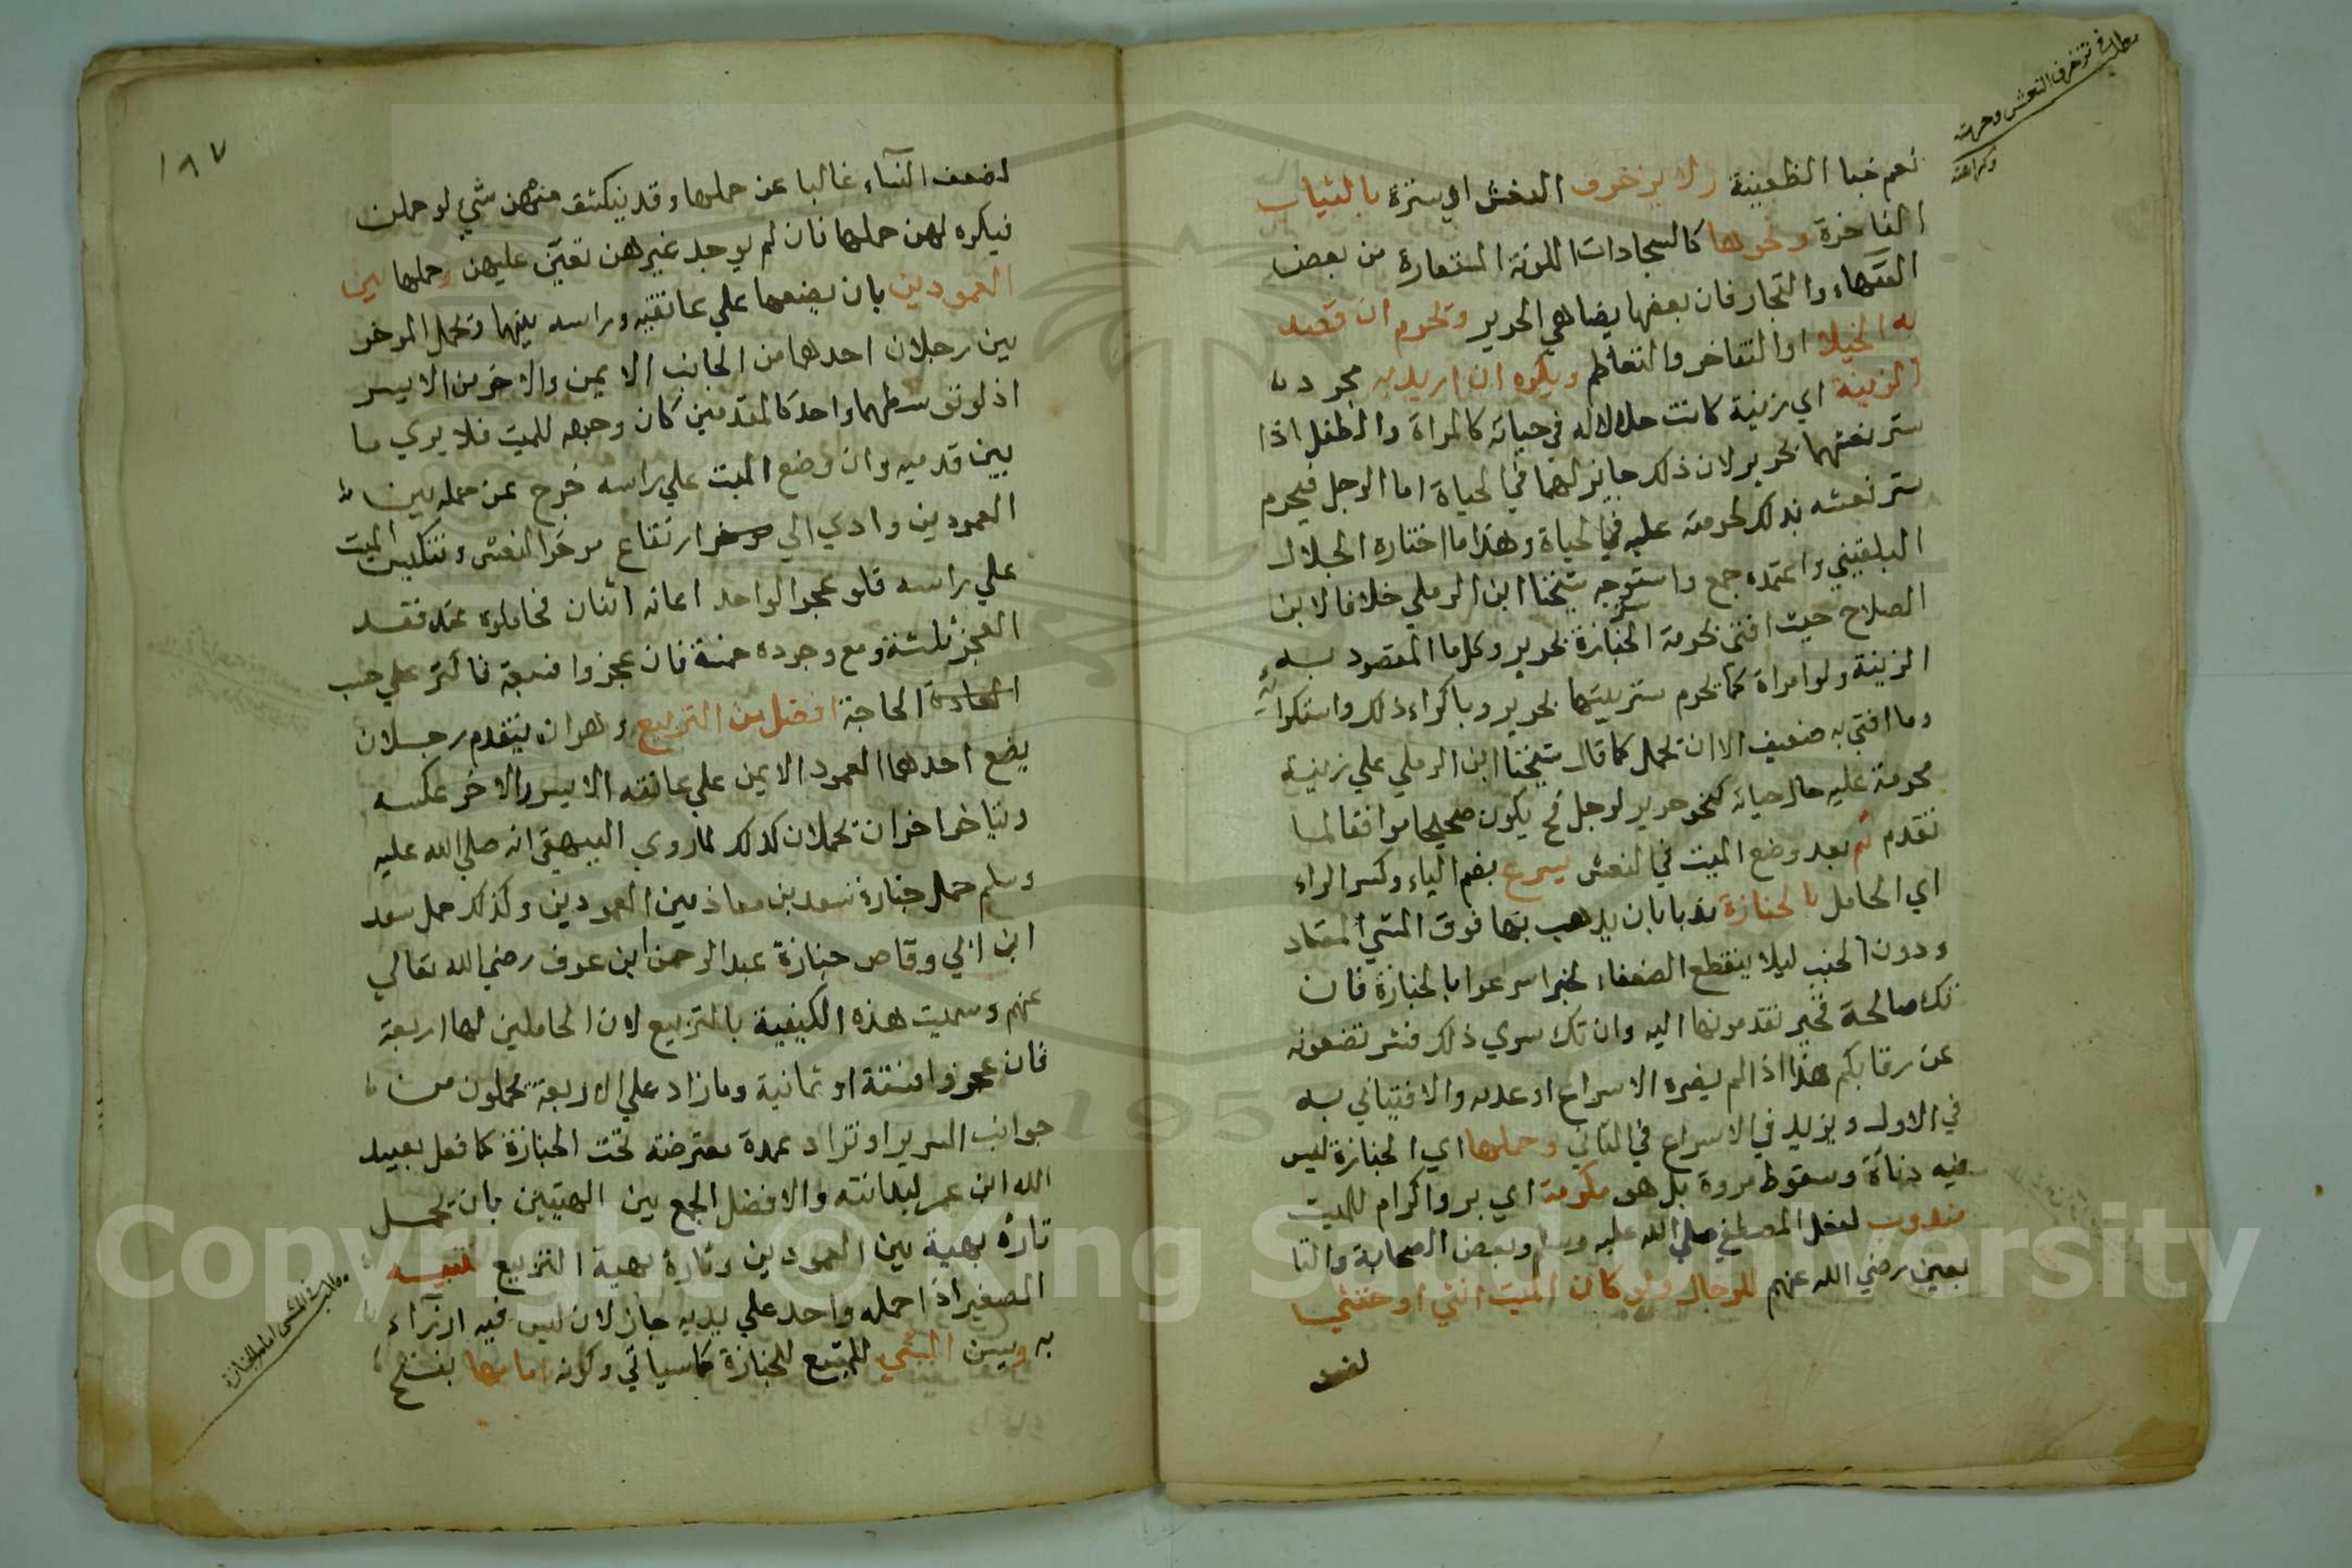 مطلب في تزخرف النعش وحرمته
وكراهته
نعم خبا الظعينة ولا يزخرف النعش اي ستره بالثياب
الفاخرة ونحوها كالسجادات الملونة المستعارة من بعض
الفقهاء والتجار فان بعضها يضاهي الحرير وتحرم ان قصد
به الخيلا او التفاخر والتعاظم ويكره ان اريد به مجرد
الزينة اي زينة كانت حلالا له في حياته كالمراة والطفل اذا
ستر نعشهما بحرير لان ذلك جايز لهما في الحياة اما الرجل فيحرم
ستر نعشه بذلك لحرمته عليه في الحياة وهذا ما اختاره الجلال
البلقيني واعتمده جمع واستوجه شيخنا ابن الرملي خلافا لابن
الصلاح حيث افتى بحرمة ستر الجنازة بحرير وكل ما المقصود به
الزينة ولو امراة كما يحرم ستر بيتها بحرير وباكراء ذلك واستكرائه
وما افتي به ضعيف الا ان تحمل كما قال شيخنا ابن الرملي علي زينة
محرمة عليه حال حياته كنحو حرير لرجل فح يكون صحيحا موافقا لما
تقدم ثم بعد وضع الميت في النعش يسرع بضم الياء وكسر الراء
اي الحامل بالجنازة ندبا بان يذهب بها فوق المشي المعتاد
ودون الخبب ليلا ينقطع الضعفاء لخبر اسرعوا بالجنازة فان
تك صالحة فخير تقدمونها اليه وان تك سوي ذلك فشر تضعونه
عن رقابكم هذا اذا لم يضره الاسراع او عدمه والا فيتاني به
في الاول ويزيد في الاسراع في الثاني وحملها اي الجنازة ليس
فيه دناة وسقوط مروة بل هو مكرمة اي بر واكرام للميت
مندوب لفعل المصطفي صلي الله عليه وسلم وبعض الصحابة والتا
بعين رضي الله عنهم للرجال ولو كان الميت انثي او خنثي
لضعف
١٨٧
لضعف النساء غالبا عن حملها وقد ينكشف منهن شي لو حملن
فيكره لهن حملها فان لم يوجد غيرهن تعين عليهن وحملها بين
العمودين بان يضعها علي عاتقيه وراسه بينهما وتحمل المؤخر
ين رجلان احدهما من الجانب الايمن والاخر من الايسر
اذ لو توسطهما واحد كالمقدمين كان وجهه للميت فلا يري ما
بين قدميه وان وضع الميت علي راسه خرج عن حمله بين
العمودين وادي الي ارتفاع مؤخر النعش وتنكيس الميت
علي راسه فلو عجز الواحد اعانه اثنان فحاملوه عند فقد
العجز ثلثة ومع وجوده خمسة فان عجزوا فسبعة فاكثر علي حسب
الحاجة افضل من التربيع وهو ان يتقدم رجلان
يضع احدهما العمود الايمن علي عاتقه الايسر والاخر عكسه
ويتاخر اخران تحملان كذلك لما روي البيهقي انه صلي الله عليه
وسلم حمل جنازة سعد بن معاذ بين العمودين وكذلك حمل سعد
ابن ابي وقاص جنازة عبد الرحمن ابن عوف رضي الله تعالي
عنهم وسميت هذه الكيفية بالتربيع لان الحاملين لها اربعة
فان عجزوا فستة او ثمانية وما زاد علي الاربعة تحملون من
جوانب السرير او تزاد عمدة معترضة تحت الجنازة كما فعل بعبيد
الله ابن عمر لبدانته والافضل الجمع بين الهيتين بان تحمل
تارة بهية بين العمودين وتارة بهية التربيع تنبيه
الصغير اذا حمله واحد علي يديه جاز لان ليس فيه ازراء
به ويسن المشي للمتبع للجنازة كما سياتي وكونه امامها بفتح
مطلب في المشي امام الجنازة
Copyright © King Saud University
195